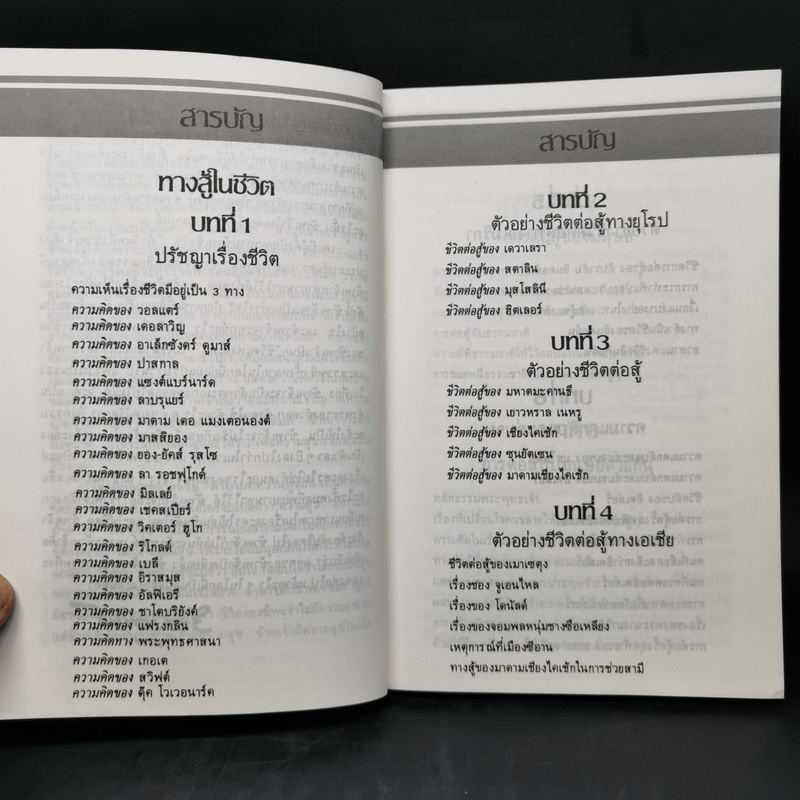 สารบัญ
ทางสู้ในชีวิต
บทที่ 1
ปรัชญาเรื่องชีวิต
ความเห็นเรื่องชีวิตมีอยู่เป็น 3 ทาง
ความคิดของ วอลแตร์
ความคิดของ เดอลาวิญ
ความคิดของ อาเล็กซังดร์ ดูมาส์
ความคิดของ ปาสกาล
ความคิดของ แซงต์แบร์นาร์ด
ความคิดของ ลาบรุแยร์
ความคิดของ มาดาม เดอ แมงเตอนองต์
ความคิดของ มาสสิยอง
ความคิดของ ยอง-ยัคส์ รุสโซ
ความคิดของ ลา รอชฟุโกด์
ความคิดของ มิลเลย์
ความคิดของ เชคสเปียร์
ความคิดของ วิคเตอร์ ฮูโก
ความคิดของ ริโกลต์
ความคิดของ เบลี
ความคิดของ อิราสมุส
ความคิดของ อัลฟิเอรี
ความคิดของ ชาโตบริยังค์
ความคิดของ แฟรงกลิน
ความคิดทาง พระพุทธศาสนา
ความคิดของ เกอเต
ความคิดของ สวิฟต์
ความคิดของ ดุ๊ค โวเวอนาร์ค
สารบัญ
บทที่ 2
ตัวอย่างชีวิตต่อสู้ทางยุโรป
ชีวิตต่อสู้ของ เดวาเลรา
ชีวิตต่อสู้ของ สตาลิน
ชีวิตต่อสู้ของ มุสโสลินี
ชีวิตต่อสู้ของ ฮิตเลอร์
บทที่ 3
ตัวอย่างชีวิตต่อสู้
ชีวิตต่อสู้ของ มหาตมะคานธี
ชีวิตต่อสู้ของ เยาวหราล เนหรู
ชีวิตต่อสู้ของ เชียงไคเช้ค
ชีวิตต่อสู้ของ ซุนยัดเซน
ชีวิตต่อสู้ของ มาดามเชียงไคเช้ค
บทที่ 4
ตัวอย่างชีวิตต่อสู้ทางเอเชีย
ชีวิตต่อสู้ของเมาเซตุง
เรื่องของ จูเอนไหล
เรื่องของ โดนัลด์
เรื่องของจอมพลหนุ่มชางซือเหลียง
เหตุการณ์ที่เมืองซีอาน
ทางสู้ของมาดามเชียงไคเช้คในการช่วยสามี